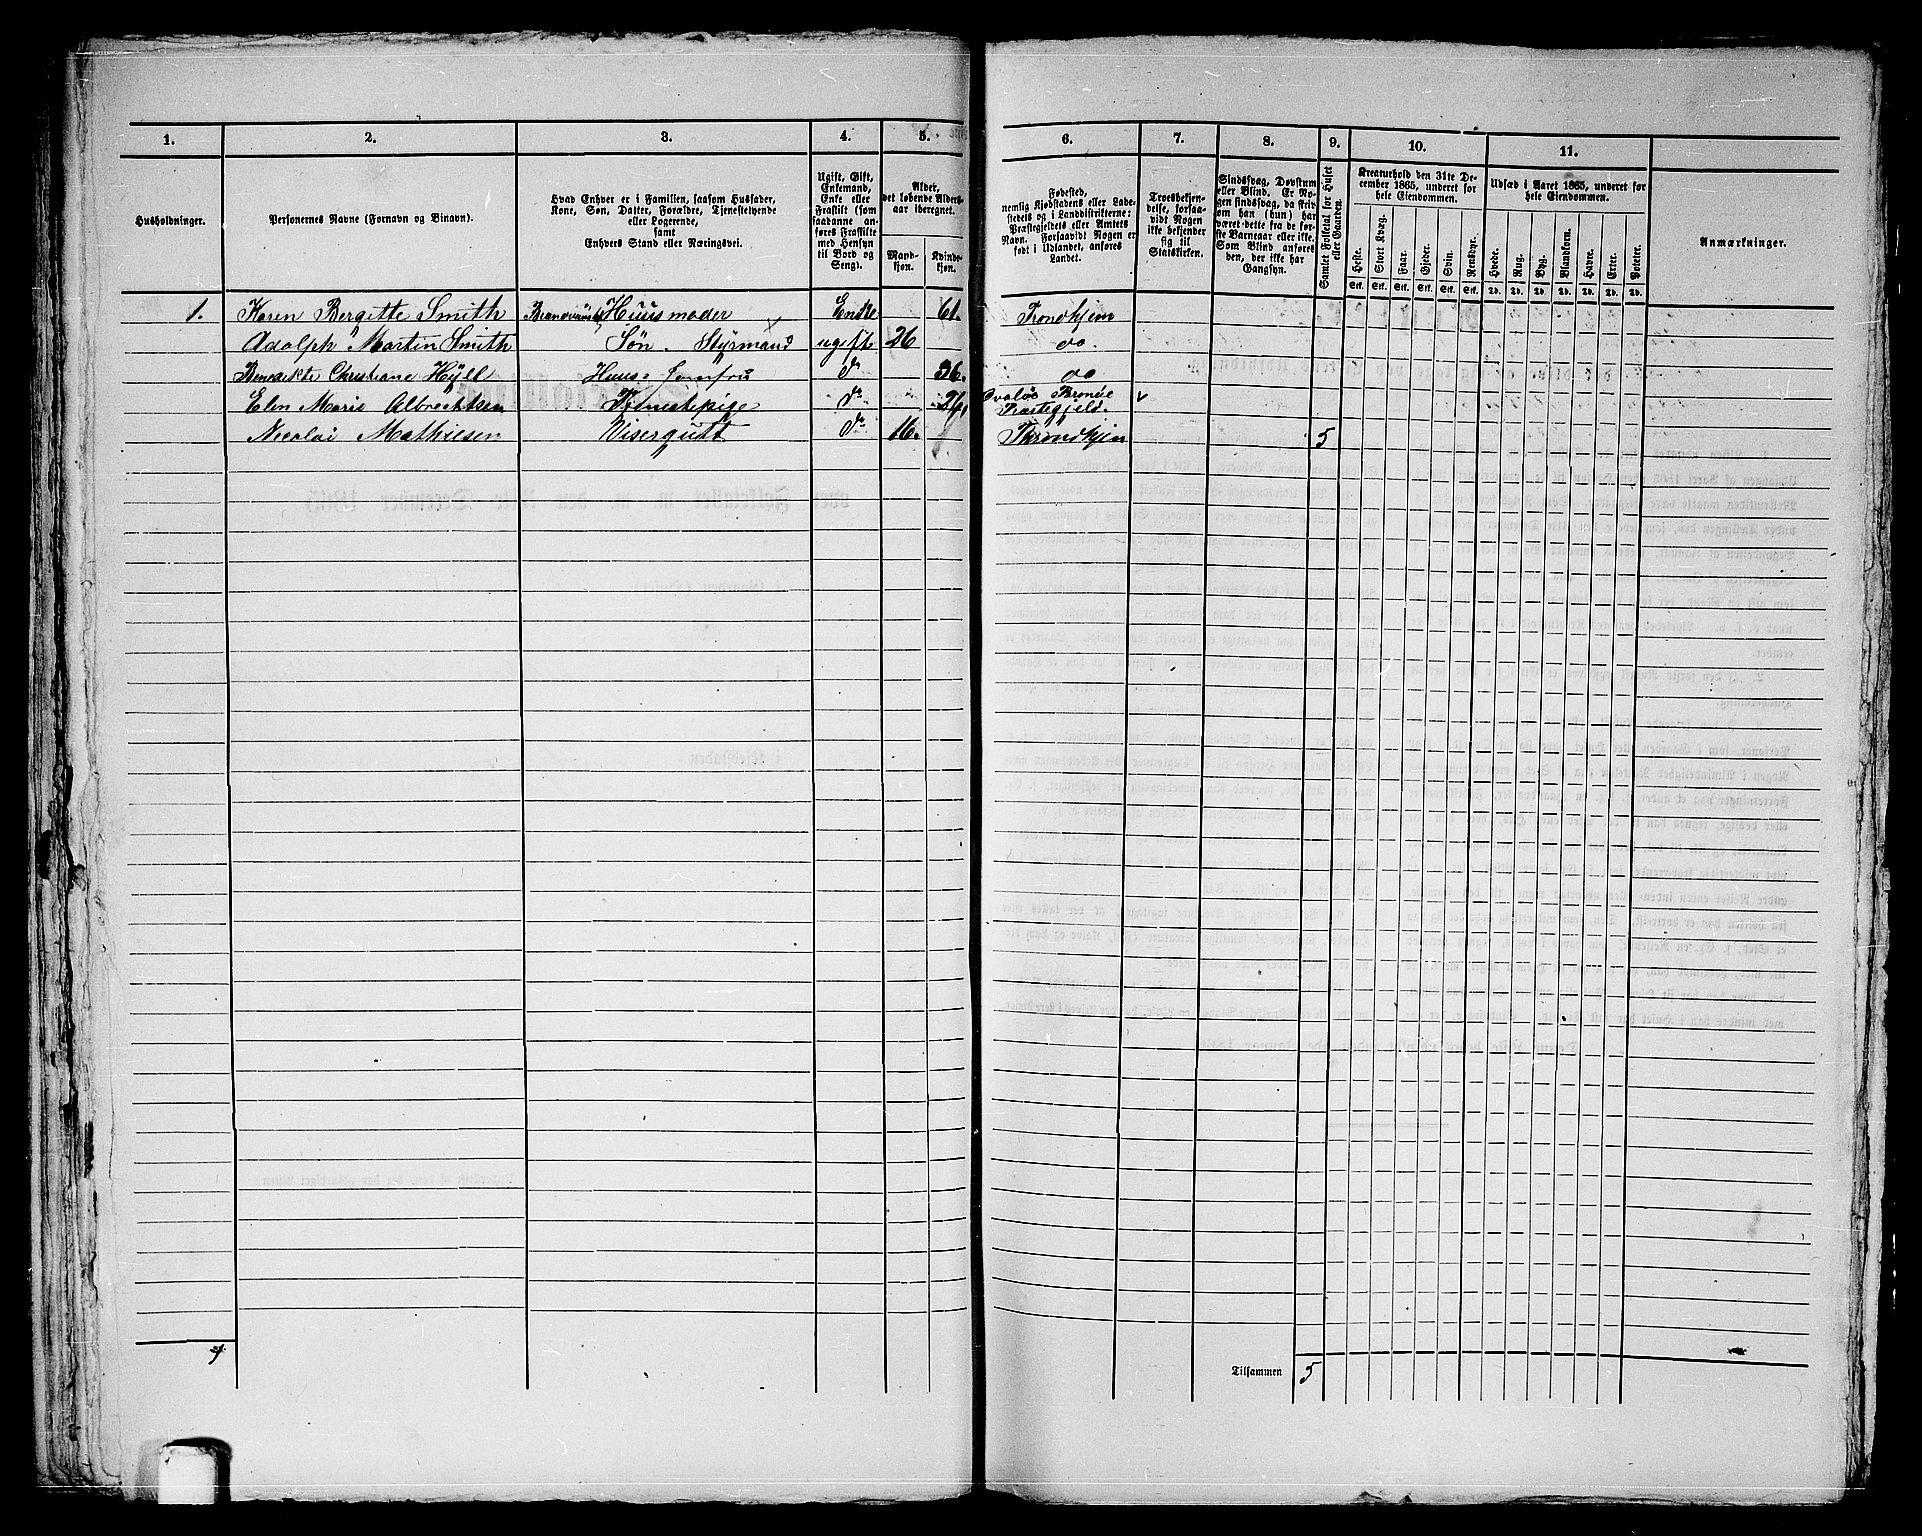 1. 2. 3. 4. 5. 6. 7. 8. 9. 10. 11.
Husholdninger.
Personernes Navne (Fornavn og Binavn).
Hvad Enhver er i Familien, saasom Husfader,
Kone, Søn, Datter, Forældre, Tjenestetyende
eller Logerende,
samt
Enhvers Stand eller Næringsvei.
Ugift, Gift,
Enkemand,
Enke eller
Fraskilt (som
saadanne an-
føres Fraskilte
med Hensyn
til Bord og
Seng).
Alder,
det løbende Alders-
aar iberegnet.
Mand-
kjøn.
Kvinde-
kjøn.
Fødested,
nemlig Kjøbstadens eller Lade-
stedets og i Landdistrikterne:
Præstegjeldets eller Amtets
Navn. Forsaavidt Nogen er
født i Udlandet, anføres
Landet.
Troesbekjen-
delse, forsaa-
vidt Nogen
ikke bekjender
sig til
Statskirken.
Sindssvag, Døvstum
eller Blind. Er No-
gen sindssvag, da skriv
om han (hun) har
været dette fra de før-
ste Barneaar eller ikke.
Som Blind anføres
den, der ikke har
Gangsyn.
Samlet Folketal for Huset
eller Gaarden.
Kreaturhold den 31te De-
cember 1865, underet for
hele Eiendommen.
Heste. Stort Kvæg. Faar. Gjeder. Svin. Rensdyr.
Stk. Stk. Stk. Stk. Stk. Stk.
Udsæd i Aaret 1865, underet for
hele Eiendommen.
Hvede. Rug. Byg. Blandkorn. Havre. Erter. Poteter.
Td. Td. Td. Td. Td. Td. Td.
Anmærkninger.
1. Karen Bergitte Smith Huusmoder Enke 61. Trondhjem
Adolph Martin Smith Søn. Styrmand ugift 26 do.
Benedikte Christiane Hÿll Huus Jomfru do 36. do
Elen Marie Albrechtsen Tjenestepige do 24 Præstegjeld.
Nicolai Mathiesen Visergutt do 16. Throndhjem 5
Tilsammen 5